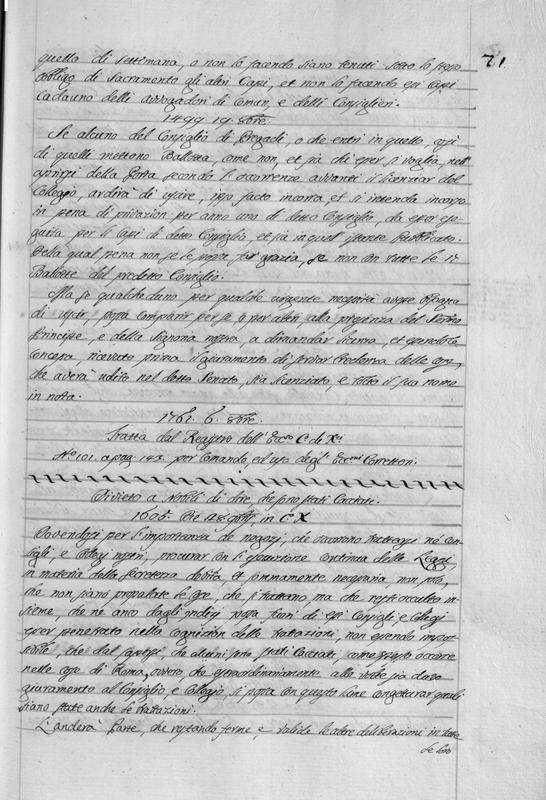 71
quello di settimana, o non lo facendo siano tenuti sotto lo stesso
obbligo di Sacramento gli altri Capi, et non lo facendo essi Capi
cadauno delli avvogadori di Comun, e delli Consiglieri.
1499. 19. 8bre.
Se alcuno del Consiglio di Pregadi, o che entri in quello, essi
di quelli mettono Ballotta, come non, et sia chi esser si voglia, nell'
aprirsi della Porta secondo l'occorrenze avvanti il licenziar del
Collegio, ardirà di uscire, ipso facto incorra et s'intenda incorso
in pena di privazion per anno uno di detto Consiglio, da esser ese-
guita per li Capi di detto Consiglio, et sia in quel Publicato.
Della qual pena non se li possa far grazia, se non con tutte le 17
Ballotte del predetto Consiglio.
Ma se qualchedun per qualche urgente necessità avesse
di uscir, possa comparir per se o per altri, alla presenza del Sermo
Principe, e della Signoria nostra, a dimandar licenza, et essendoli
concessa, ricevuto prima il giuramento di servar credenza delle cose,
che averà udito nel detto Senato, sia licenziato, e tolto il suo nome
in nota.
1761. 6. 8bre.
Tratta dal Registro dell'Eccso C. di Xci
No 101. a pag. 143. per comando, ed uso degl'Eccmi Correttori.
Divieto a Nobili di dire, che sono stati Cacciati.
1605. in C. X
Dovendosi per l'importanza de negozj, che occorrono trattarsi nè Con-
sigli, e Collegj nostri, procurar con l'esecuzione continua delle Leggi,
in materia della Secretezza debita, et sommamente necessaria non solo,
che non siano propalate le cose, che si trattano, ma che resti occulto in-
sieme, che nè anco dagli indizj possa fuori di essi Consigli, e Collegj
esser penetrato nella cognizion delle trattazioni, non essendo impor-
che dal sapersi, che alcuni sono stati Cacciati, come spesso occorre
nelle cose di Roma, ovvero, che estraordinariamente alle volte sia dato
giuramento al Consiglio, e Collegio, si possa con questo lume congetturar quali
siano state anche le trattazioni.
L'anderà Parte, che restando ferme, e valide le altre deliberazioni in